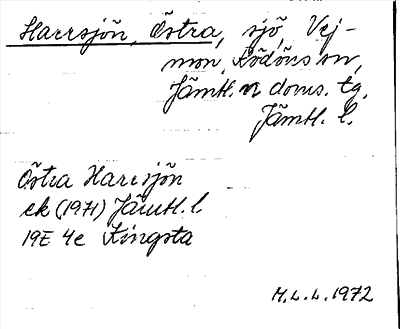 Harrsjön, Östra, sjö, Vej-
mon, Rödöns sn,
Jämtl. n doms. tg,
Jämtl. l.
Östra Harrsjön
ek (1971) Jämtl. l.
19E 4e Kingsta
M.L.L. 1972